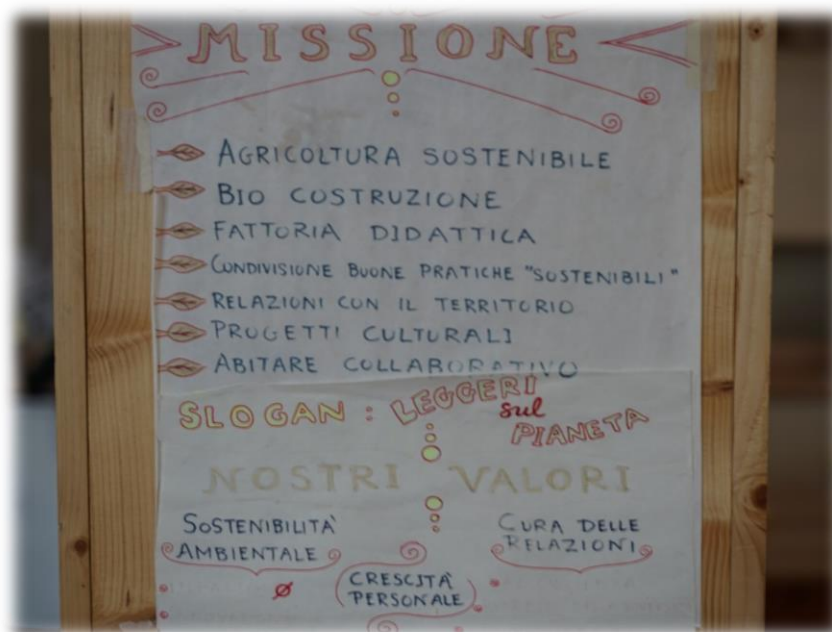 MISSIONE
AGRICOLTURA SOSTENIBILE
BIO COSTRUZIONE
FATTORIA DIDATTICA
CONDIVISIONE BUONE PRATICHE "SOSTENIBILI"
RELAZIONI CON IL TERRITORIO
PROGETTI CULTURALI
ABITARE COLLABORATIVO
SLOGAN : LEGGERI
sul
PIANETA
NOSTRI VALORI
SOSTENIBILITÀ
AMBIENTALE
CURA DELLE
RELAZIONI
CRESCITÀ
PERSONALE